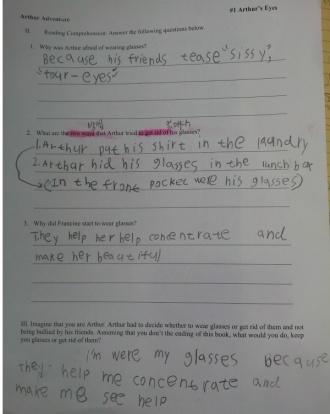 #1 Arthur's Eyes
Arthur Adventure
II. Reading Comprehension: Answer the following questions below.
1. Why was Arthur afraid of wearing glasses?
Because his friends tease "sissy,
"four-eyes"
방법
2. What are the two ways that Arthur tried to get rid of his glasses?
1. Arthur put his shirt in the laundry
2. Arthur hid his glasses in the lunch box
(In the front pocket were his glasses)
3. Why did Francine start to wear glasses?
They help her help concentrate and
make her beautiful
III. Imagine that you are Arthur. Arthur had to decide whether to wear glasses or get rid of them and not
being bullied by his friends. Assuming that you don't the ending of this book, what would you do, keep
you glasses or get rid of them?
I'm were my glasses because
They help me concentrate and
make me see help